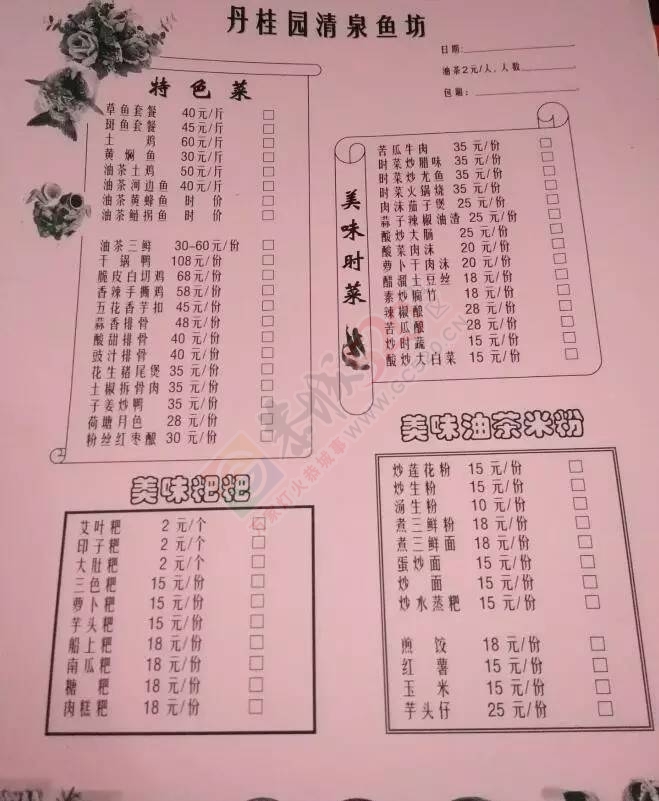 丹桂园清泉鱼坊
日期:
油茶2元/人,人数
包厢:
特色菜
草鱼套餐 40元/斤
斑鱼套餐 45元/斤
土鸡 60元/斤
黄焖鱼 30元/斤
油茶土鸡 50元/斤
油茶河边鱼 40元/斤
油茶黄蜂鱼 时价
油茶鲇拐鱼 时价
油茶三鲜 30-60元/份
干锅鸭 108元/份
脆皮白切鸡 68元/份
香辣手撕鸡 58元/份
五花香芋扣 45元/份
蒜香排骨 48元/份
酸甜排骨 40元/份
豉汁排骨 40元/份
花生猪尾煲 35元/份
土椒拆骨肉 35元/份
子姜炒鸭 35元/份
荷塘月色 28元/份
粉丝红枣酿 30元/份
美味时菜
苦瓜牛肉 35元/份
时菜炒腊味 35元/份
时菜炒尤鱼 35元/份
时菜火锅烧 35元/份
肉沫茄子煲 25元/份
蒜子辣椒油渣 25元/份
酸炒大肠 25元/份
酸菜肉沫 20元/份
萝卜干肉沫 20元/份
醋溜土豆丝 18元/份
素炒腐竹 18元/份
辣椒酿 28元/份
苦瓜酿 28元/份
炒时蔬 15元/份
酸炒大白菜 15元/份
美味粑粑
艾叶粑 2元/个
印子粑 2元/个
大肚粑 2元/个
三色粑 15元/份
萝卜粑 15元/份
芋头粑 15元/份
船上粑 18元/份
南瓜粑 18元/份
糖粑 18元/份
肉糕粑 18元/份
美味油茶米粉
炒莲花粉 15元/份
炒生粉 15元/份
汤生粉 10元/份
煮三鲜粉 18元/份
煮三鲜面 18元/份
蛋炒面 15元/份
炒面 15元/份
炒水蒸粑 15元/份
煎饺 18元/份
红薯 15元/份
玉米 15元/份
芋头仔 25元/份